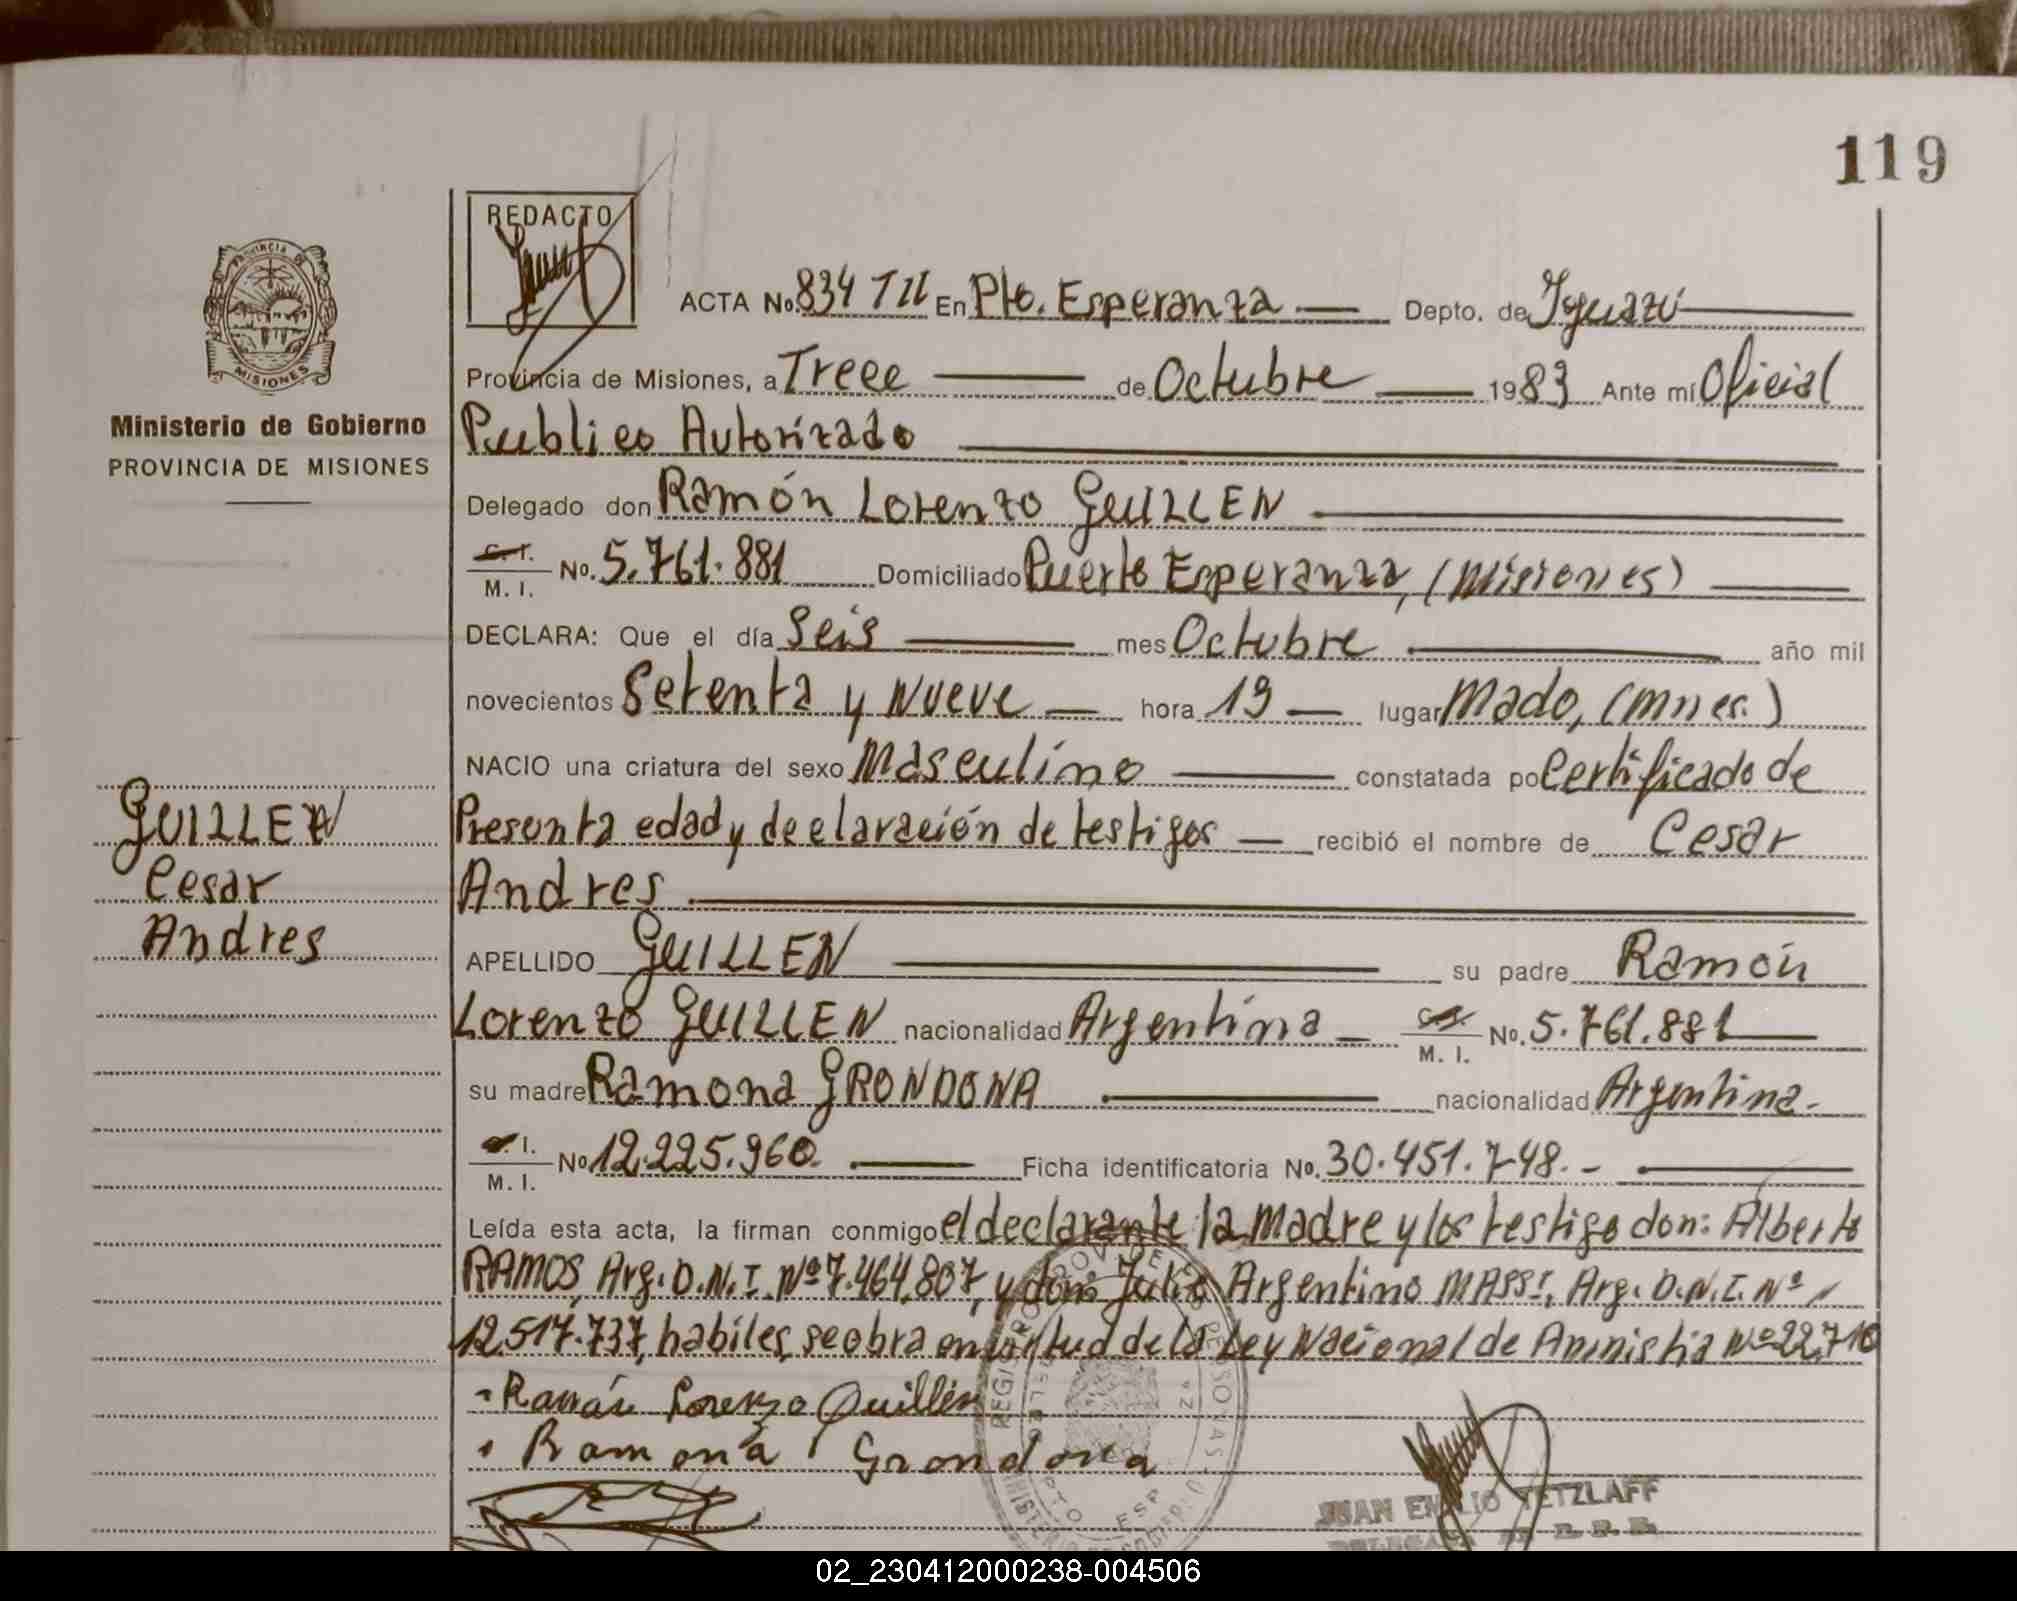 119
REDACTO
ACTA No. 834 TII En Pto. Esperanza Depto. de Iguazú
Provincia de Misiones, a Trece de Octubre 1983 Ante mí Oficial
Ministerio de Gobierno
PROVINCIA DE MISIONES
Publico Autorizado
Delegado don Ramón Lorenzo GUILLEN
C. I. M. I. No. 5.761.881 Domiciliado Puerto Esperanza, (Misiones)
DECLARA: Que el día Seis mes Octubre año mil
novecientos Setenta y Nueve hora 19 lugar Mado, (Mnes.)
NACIO una criatura del sexo Masculino constatada po Certificado de
Presunta edad y declaración de testigos recibió el nombre de Cesar
Andres
GUILLEN
Cesar
Andres
APELLIDO GUILLEN su padre Ramón
Lorenzo GUILLEN nacionalidad Argentina C. I. M. I. No. 5.761.881
su madre Ramona GRONDONA nacionalidad Argentina.-
I. M. I. No 12.225.960. Ficha identificatoria No. 30.451.748.-
Leída esta acta, la firman conmigo el declarante la madre y los testigo don: Alberto
RAMOS, Arg. D.N.I. Nº 7.464.807, y don: Julio Argentino MASSI, Arg. D.N.I. Nº
12.517.737, habiles, se obra en virtud de la Ley Nacional de Amnistia Nº 22.710
Ramón Lorenzo Guillén
Ramona Grondona
JUAN EMILIO TETZLAFF
02_230412000238-004506